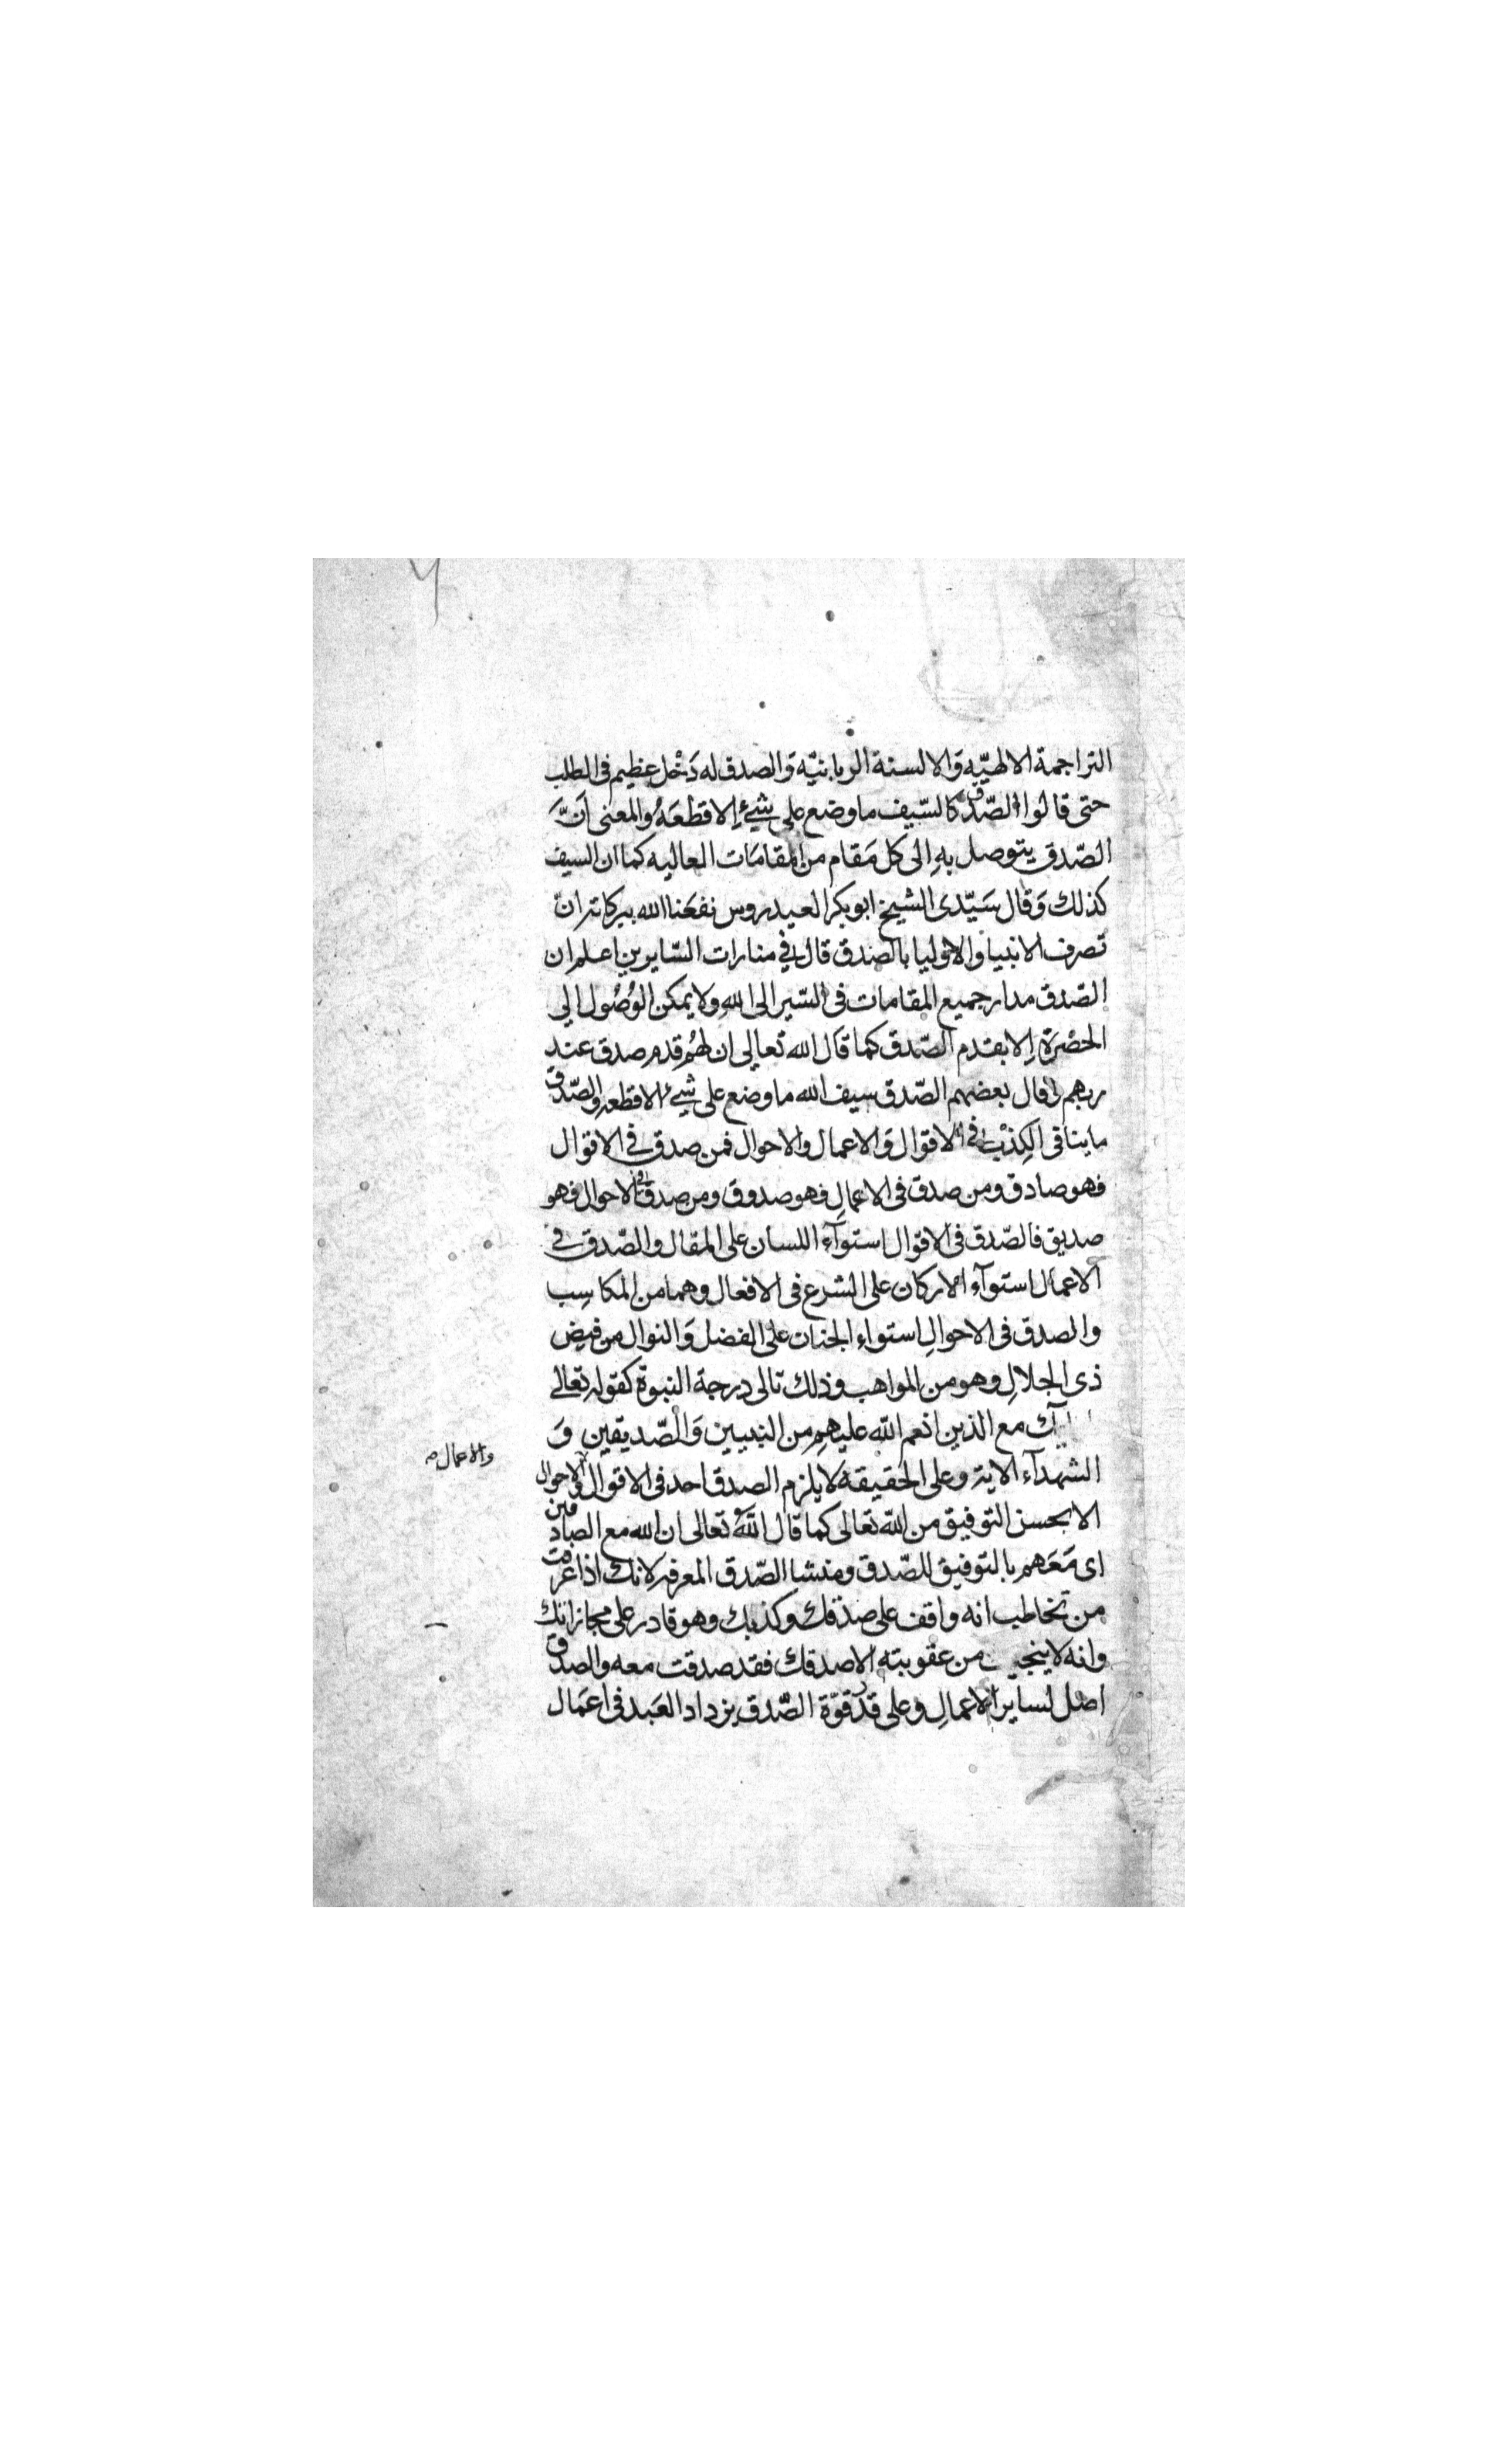 التراجمة الالهيّه وَالالسنة الربانيّه وَالصدق له دَخْل عظيم في الطلب
حتى قالوا الصّدق كالسّيف ما وضع على شيءٍ إلا قطعَهُ والمعنى اَنَّ
الصّدق يتوصل بهِ إلى كل مَقام من المقامَات العاليه كما ان السيف
كذلك وَقال سَيّدى الشيخ ابوبكر العيدروس نفعَنا الله ببركاته انّ
تصرف الانبيا والاوليا بالصّدق قال في منارات السّايرين اعلم ان
الصّدق مدار جميع المقامات فى السّير الى اللهِ ولا يمكن الوُصُول الي
الحضْرَة إلا بقدم الصّدق كما قال الله تعالى ان لهُم قدم صدق عند
ربهم وقال بعضهم الصّدق سيف الله ما وضع على شيءٍ الا قطعه والصّدق
ما ينافى الكِذْبَ في الاقوال وَالاعمال والاحوال فمن صدق في الاقوال
فهو صادق ومن صدق فى الاعمالِ فهو صدوق ومن صدق فى الاحوال فهو
صديق فالصّدق فى الاقوال استوآء اللسان على المقال والصّدق في
الاعمال استوآء الاركان على الشرع فى الافعال وهما من المكاسِب
والصدق فى الاحوالِ استواء الجنان على الفضل وَالنوال من فيض
ذى الجلالِ وهو من المواهب وذلك تالى درجة النبوة كقوله تعالى
مع الذين انعم اللّه عليهِم من النبيين وَالصّديقين وَ
الشهدآء الاية وعلى الحقيقه لا يلزم الصدق احد فى الاقوال والاحوال
والاعمال
الا بحسن التوفيق من اللّه تعالى كما قال اللّهُ تعالى ان الله مع الصادقين
اى مَعَهم بالتوفيق للصّدق ومنشا الصّدق المعرفه لانك اذا عرفت
من تخاطب انه واقف على صدْقك وكذبك وهو قادر على مجازاتك
وانه لا ينجى من عقوبته الا صدقك فقد صدقت معه والصدق
اصْل لساير الاعمالِ وعلى قدر قوّة الصّدق يزداد العَبد فى اعمَال